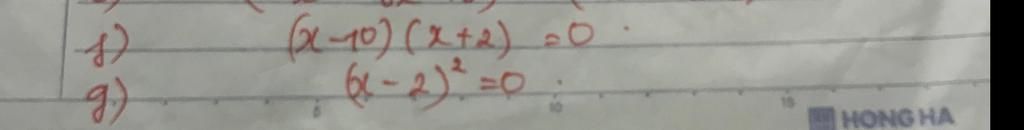 f) (x-10)(x+2) = 0.
g) (x-2)² = 0.
5 10 15
HONG HA